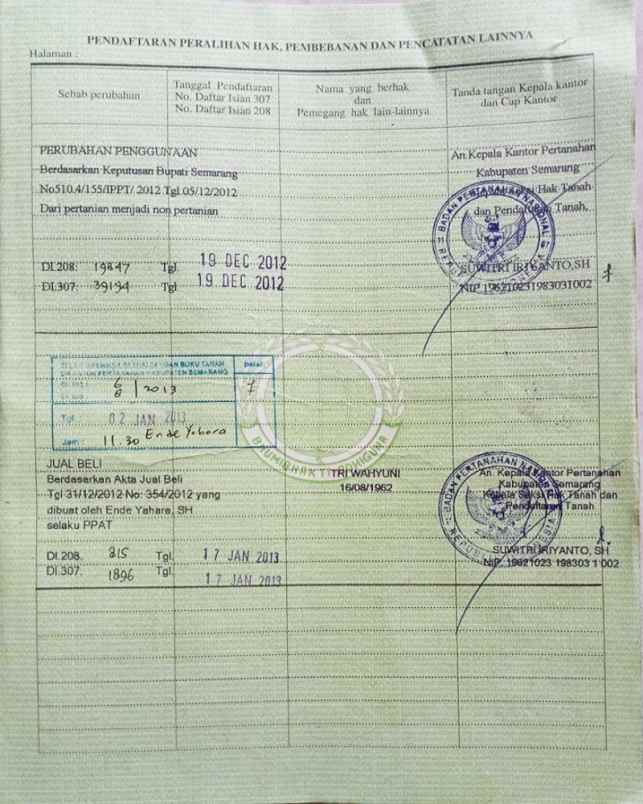 PENDAFTARAN PERALIHAN HAK, PEMBEBANAN DAN PENCATATAN LAINNYA
Halaman :
Sebab perubahan
Tanggal Pendaftaran
No. Daftar Isian 307
No. Daftar Isian 208
Nama yang berhak
dan
Pemegang hak lain-lainnya
Tanda tangan Kepala kantor
dan Cap Kantor
PERUBAHAN PENGGUNAAN
Berdasarkan Keputusan Bupati Semarang
No510.4/155/IPPT/ 2012 Tgl 05/12/2012
Dari pertanian menjadi non pertanian
An.Kepala Kantor Pertanahan
Kabupaten Semarang
Hak Tanah
dan Pendaftaran Tanah,
BADAN PERTANAHAN NASIONAL
DI.208: 19847 Tgl. 19 DEC 2012
DI.307: 39194 Tgl 19 DEC 2012
SUWITRI IRIYANTO,SH
NIP. 196210231983031002
BUKU TANAH
KABUPATEN SEMARANG
6/8 / 2013
7
Tgl : 02 JAN 2013
Jam : 11.30 Ende Yahara
BHUMI BHAKTI
JUAL BELI
Berdasarkan Akta Jual Beli
Tgl 31/12/2012 No: 354/2012 yang
dibuat oleh Ende Yahara, SH
selaku PPAT
TRI WAHYUNI
16/08/1962
An. Kepala Kantor Pertanahan
Kabupaten Semarang
Kepala Seksi Hak Tanah dan
Pendaftaran Tanah
BADAN PERTANAHAN NASIONAL
REPUBLIK INDONESIA
DI.208. 815 Tgl. 17 JAN 2013
DI.307. 1896 Tgl. 17 JAN 2013
SUWITRI IRIYANTO, SH
NIP. 19621023 198303 1 002